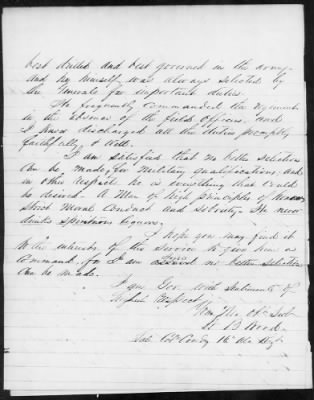 best drilled and best governed in the army
and he himself was always selected by
the Generals for important duties.
He frequently commanded the regiment
in the absence of the field officers and
I know discharged all the duties promptly
faithfully & well.
I am satisfied that no better selection
can be made, for military qualifications and
in other respects he is everything that could
be desired. A Man of high principles of
Strict Moral Conduct and sobriety. He never
drinks spirituous liquors.
I hope you may find it
to the interests of the Service to give him a
Command for I am no better selection
can be made.
I am Gov. with Sentiments of
Respect
Your Obt Servt
Late Comdg 16th Regt